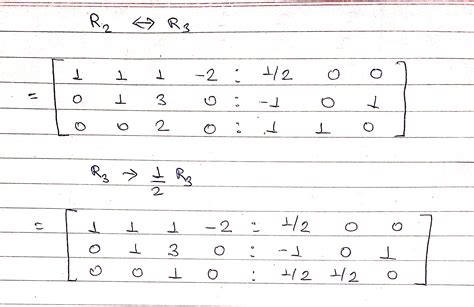 R₂ ↔ R₃
1 1 1 -2 : 1/2 0 0
= 0 1 3 0 : -1 0 1
0 0 2 0 : 1 1 0
R₃ → 1/2 R₃
= 1 1 1 -2 : 1/2 0 0
0 1 3 0 : -1 0 1
0 0 1 0 : 1/2 1/2 0